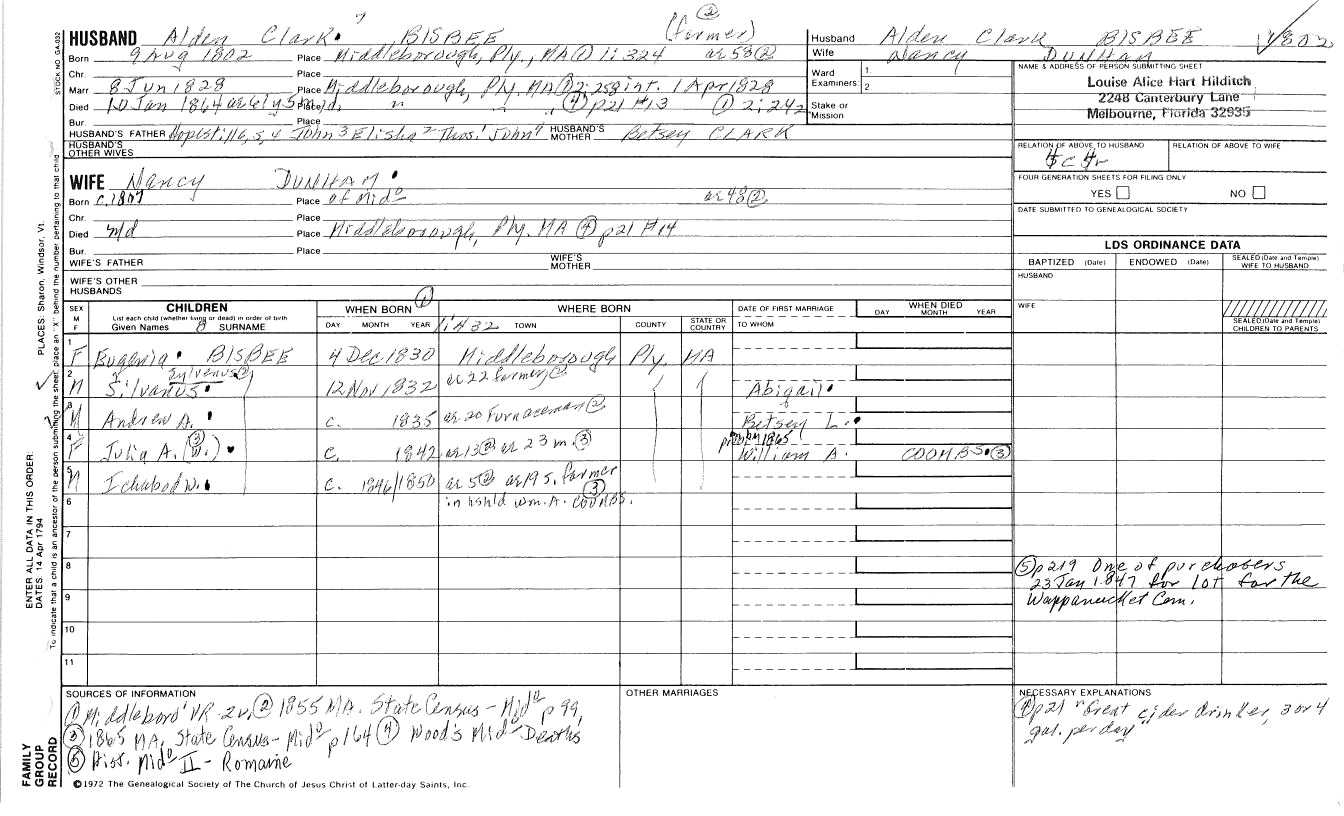 HUSBAND Alden Clark BISBEE (farmer) ②
Born 9 Aug 1802 Place Middleborough, Ply., MA ① 1:324 ae 53 ②
Chr. Place
Marr 8 Jun 1828 Place Middleborough, Ply. MA ① 2:258 int. 1 Apr 1828
Died 10 Jan 1864 ae 61y 5m Place " " " ④ p21 #13 ① 2:242
Bur. Place
HUSBAND'S FATHER John³ Elisha² Thos.¹ HUSBAND'S MOTHER Betsey CLARK
HUSBAND'S OTHER WIVES
WIFE Nancy DUNHAM
Born c. 1807 Place of Midᵒ ae 48 ②
Chr. Place
Died Md Place Middleborough, Ply. MA ④ p21 #14
Bur. Place
WIFE'S FATHER WIFE'S MOTHER
WIFE'S OTHER HUSBANDS
Husband Alden Clark BISBEE 1802
Wife Nancy DUNHAM
Ward Examiners 1 2
Stake or Mission
NAME & ADDRESS OF PERSON SUBMITTING SHEET
Louise Alice Hart Hilditch
2248 Canterbury Lane
Melbourne, Florida 32935
RELATION OF ABOVE TO HUSBAND RELATION OF ABOVE TO WIFE
FOUR GENERATION SHEETS FOR FILING ONLY
YES NO
DATE SUBMITTED TO GENEALOGICAL SOCIETY
LDS ORDINANCE DATA
BAPTIZED (Date) ENDOWED (Date) SEALED (Date and Temple) WIFE TO HUSBAND
HUSBAND
WIFE
SEALED (Date and Temple) CHILDREN TO PARENTS
SEX M F CHILDREN WHEN BORN ① WHERE BORN DATE OF FIRST MARRIAGE WHEN DIED
List each child (whether living or dead) in order of birth
Given Names SURNAME DAY MONTH YEAR 1:432 TOWN COUNTY STATE OR COUNTRY TO WHOM DAY MONTH YEAR
1 F Eugenia BISBEE 4 Dec. 1830 Middleborough Ply. MA
2 M Silvanus Sylvenus ② 12 Nov 1832 ae 22 farmer ② Abigail
3 M Andrew A. c. 1835 ae 20 Furnaceman ② Betsey L.
4 F Julia A. (W.) ③ c. 1842 ae 13 ② ae 23 m. ③ 1865 William A. COOMBS ③
5 M Ichabod W. c. 1846/1850 ae 5 ② ae 19 s. farmer
6 in hshld Wm. A. COOMBS. ③
7
8
9
10
11
⑤ p219 One of purchasers
23 Jan 1847 for lot for the
Wappanucket Cem.
SOURCES OF INFORMATION
① Middleboro' VR 2v. ② 1855 MA. State Census - Midᵒ p 99,
③ 1865 MA. State Census - Midᵒ p164 ④ Wood's Midᵒ Deaths
⑤ Hist. Midᵒ II - Romaine
OTHER MARRIAGES
NECESSARY EXPLANATIONS
④ p21 "Great cider drinker, 3 or 4
gal. per day"
©1972 The Genealogical Society of The Church of Jesus Christ of Latter-day Saints, Inc.
STOCK NO GA-032
FAMILY GROUP RECORD
ENTER ALL DATA IN THIS ORDER:
DATES: 14 Apr 1794 PLACES: Sharon, Windsor, Vt.
To indicate that a child is an ancestor of the person submitting the sheet, place an "X" behind the number pertaining to that child